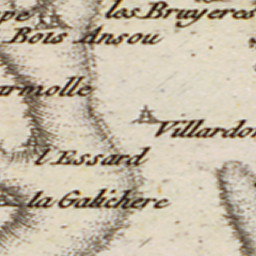 pe
les Bruyeres
Bois Ansou
armolle
Villardon
l'Essard
la Galichere